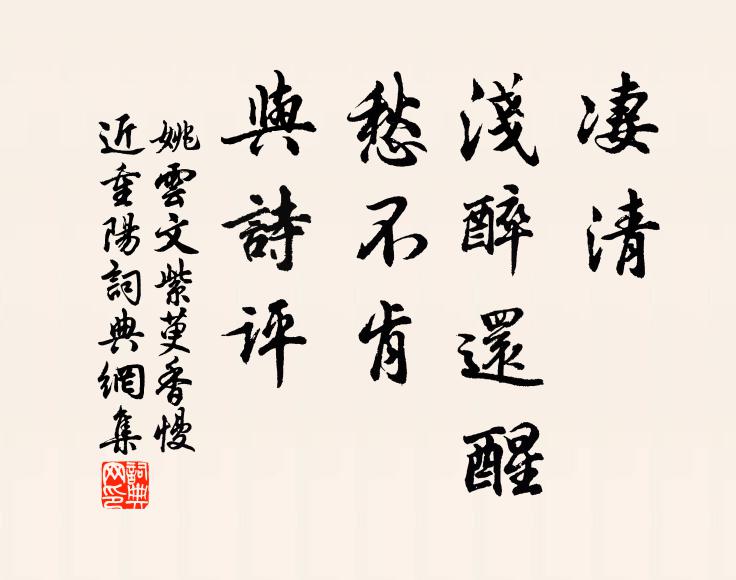 凄清
淺醉還醒
愁不肯
與詩評
姚雲文紫萸香慢
近重陽詞典網集
詞典網印